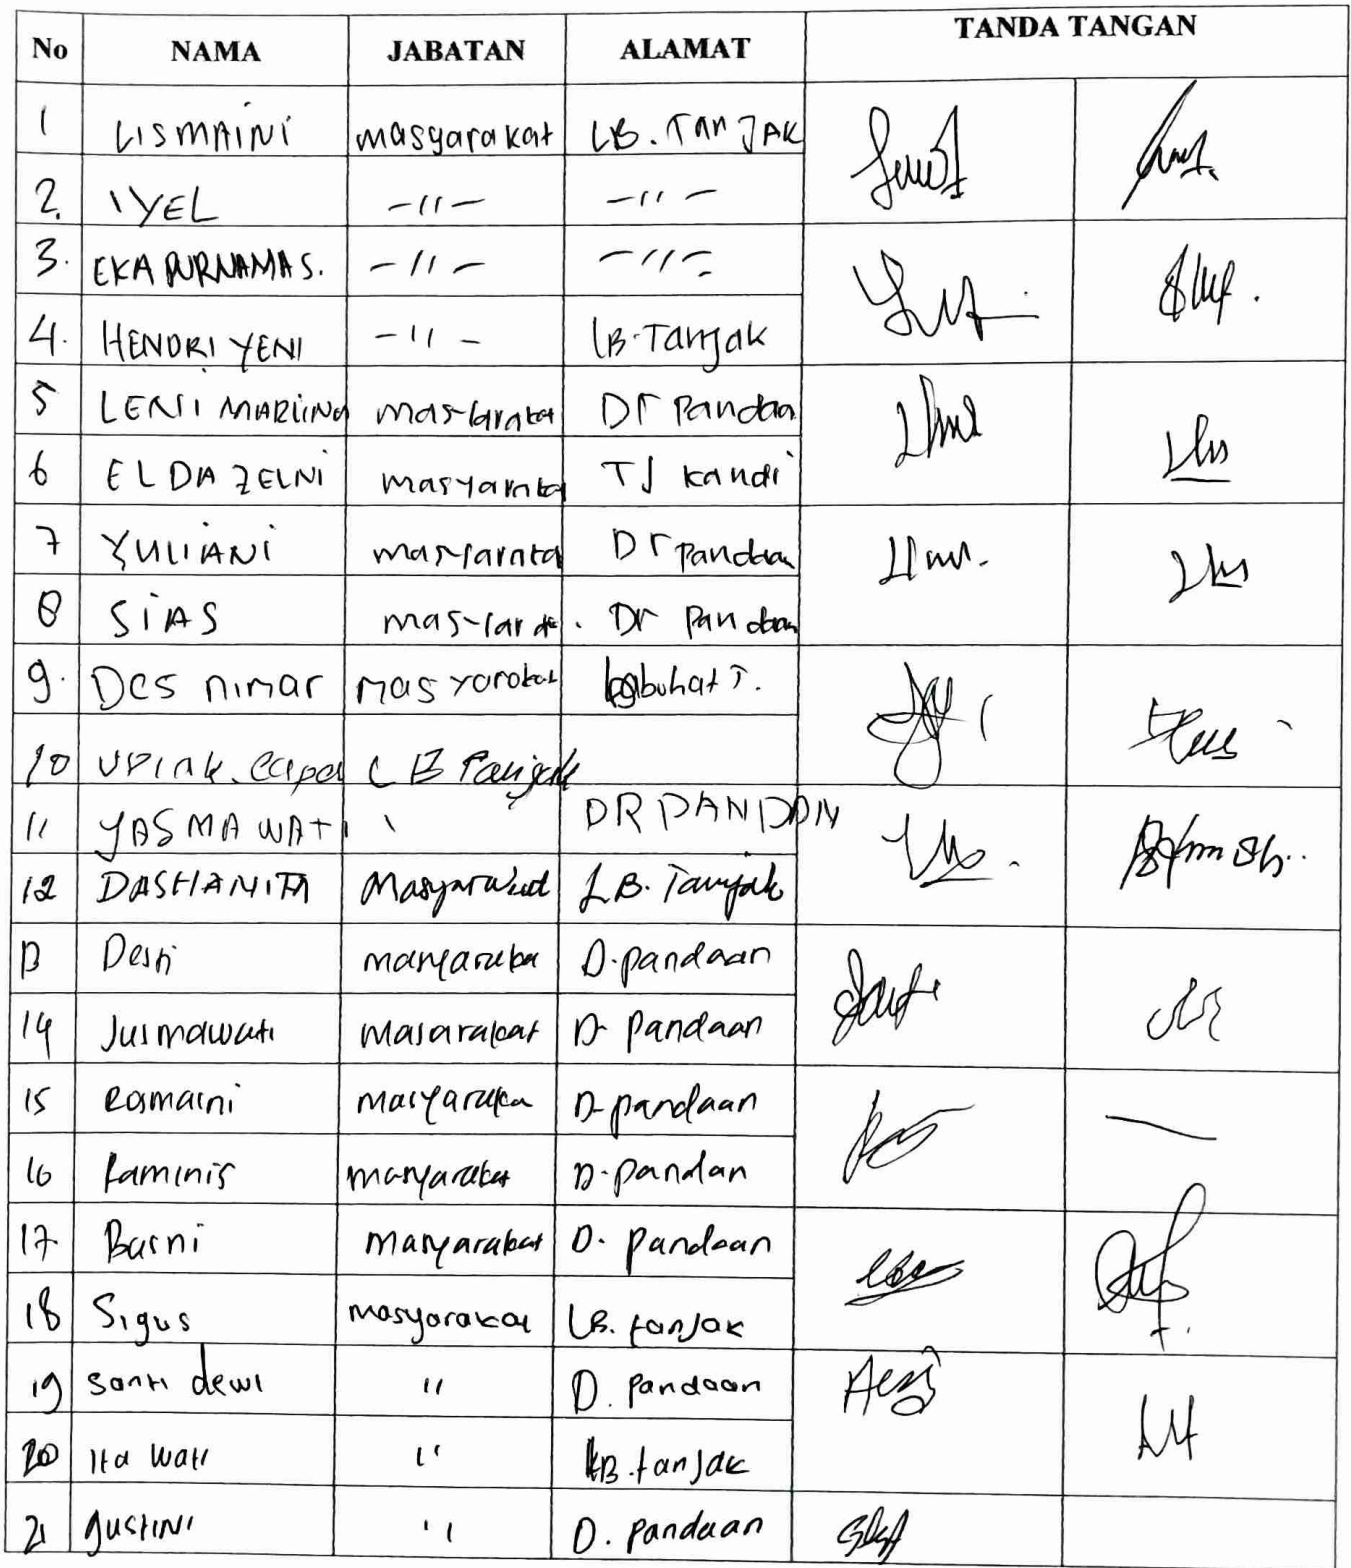 No NAMA JABATAN ALAMAT TANDA TANGAN
1 LISMAINI masyarakat LB. TanJAK
2. IYEL -11- -11-
3. EKA PURNAMAS. -11- -11-
4. HENDRI YENI -11- LB. Tanjak
5 LENI MARLINA masyaraka Dr Pandaan
6 ELDA ZELNI masyaraka TJ kandi
7 YULIANI masyaraka Dr Pandaan
8 SiAS Dr Pandaan
9. Des nimar masyarakat
10 LB Panjak
11 YASMAWATI DR PANDAN
12 DASHANITA Masyarakat LB. Tanjak
13 Desti masyaraka D. pandaan
14 Jusmawati Masarakat D Pandaan
15 Rosmaini masyaraka D-pandaan
16 Raminis masyarakat D. pandan
17 Basni Masyarakat D. pandaan
18 Sigus masyarakat LB. tanjak
19 Santi dewi 11 D. Pandaan
20 Ita wati 11 LB. tanjak
21 gustini 11 D. Pandaan